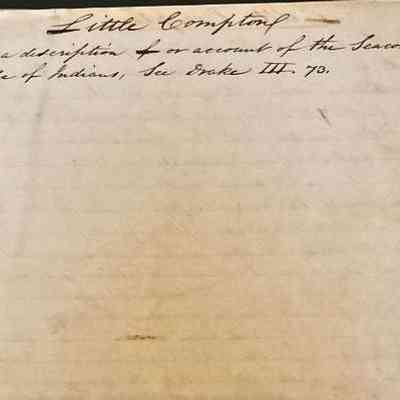 Little Compton
a description f or account of the Seaco
e of Indians, See Drake III. 73.